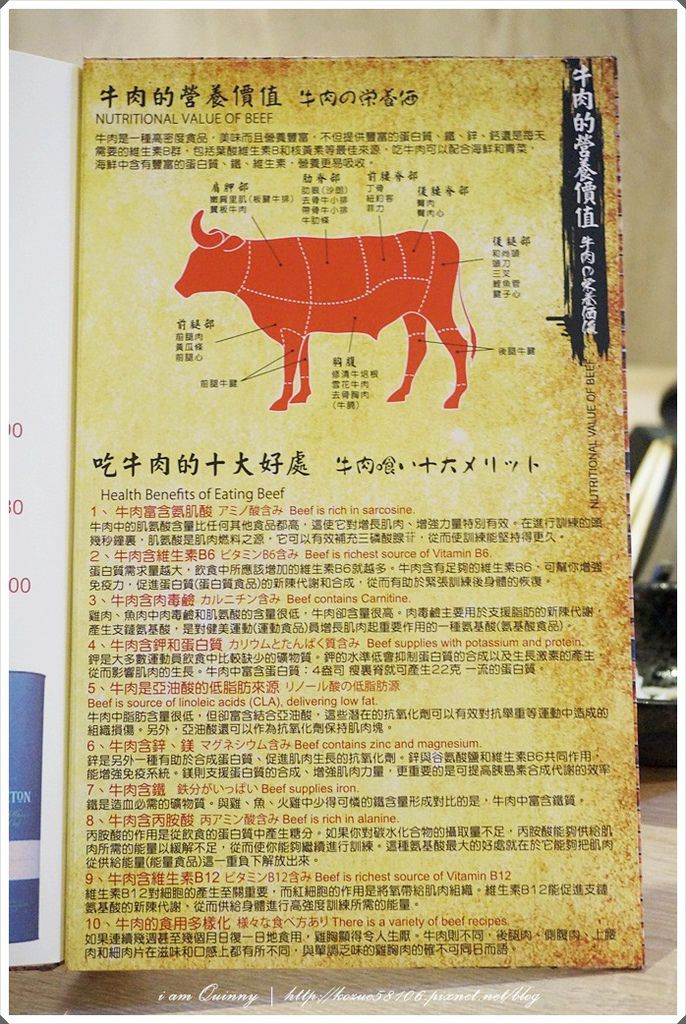 牛肉的營養價值 牛肉の栄養価
NUTRITIONAL VALUE OF BEEF
牛肉是一種高密度食品，美味而且營養豐富，不但提供豐富的蛋白質、鐵、鋅、鈣還是每天
需要的維生素B群，包括葉酸維生素B和核黃素等最佳來源，吃牛肉可以配合海鮮和青菜，
海鮮中含有豐富的蛋白質、鐵、維生素，營養更易吸收。
肩胛部
嫩肩里肌(板腱牛排)
翼板牛肉
肋脊部
肋眼(沙朗)
去骨牛小排
帶骨牛小排
牛肋條
前腰脊部
丁骨
紐約客
菲力
後腰脊部
臀肉
臀肉心
後腿部
和尚頭
頭刀
三叉
鯉魚管
腱子心
前腿部
前腿肉
黃瓜條
前腿心
前腿牛腱
胸腹
修清牛培根
雪花牛肉
去骨胸肉
(牛腩)
後腿牛腱
吃牛肉的十大好處 牛肉喰い十大メリット
Health Benefits of Eating Beef
1、牛肉富含氨肌酸 アミノ酸含み Beef is rich in sarcosine.
牛肉中的肌氨酸含量比任何其他食品都高，這使它對增長肌肉、增強力量特別有效。在進行訓練的頭
幾秒鐘裏，肌氨酸是肌肉燃料之源，它可以有效補充三磷酸腺苷，從而使訓練能堅持得更久。
2、牛肉含維生素B6 ビタミンB6含み Beef is richest source of Vitamin B6.
蛋白質需求量越大，飲食中所應該增加的維生素B6就越多。牛肉含有足夠的維生素B6，可幫你增強
免疫力，促進蛋白質(蛋白質食品)的新陳代謝和合成，從而有助於緊張訓練後身體的恢復。
3、牛肉含肉毒鹼 カルニチン含み Beef contains Carnitine.
雞肉、魚肉中肉毒鹼和肌氨酸的含量很低，牛肉卻含量很高。肉毒鹼主要用於支援脂肪的新陳代謝，
產生支鏈氨基酸，是對健美運動(運動食品)員增長肌肉起重要作用的一種氨基酸(氨基酸食品)。
4、牛肉含鉀和蛋白質 カリウムとたんぱく質含み Beef supplies with potassium and protein.
鉀是大多數運動員飲食中比較缺少的礦物質。鉀的水準低會抑制蛋白質的合成以及生長激素的產生，
從而影響肌肉的生長。牛肉中富含蛋白質：4盎司 瘦裏脊就可產生22克 一流的蛋白質。
5、牛肉是亞油酸的低脂肪來源 リノール酸の低脂肪源
Beef is source of linoleic acids (CLA), delivering low fat.
牛肉中脂肪含量很低，但卻富含結合亞油酸，這些潛在的抗氧化劑可以有效對抗舉重等運動中造成的
組織損傷。另外，亞油酸還可以作為抗氧化劑保持肌肉塊。
6、牛肉含鋅、鎂 マグネシウム含み Beef contains zinc and magnesium.
鋅是另外一種有助於合成蛋白質、促進肌肉生長的抗氧化劑。鋅與谷氨酸鹽和維生素B6共同作用，
能增強免疫系統。鎂則支援蛋白質的合成、增強肌肉力量，更重要的是可提高胰島素合成代謝的效率
7、牛肉含鐵 鉄分がいっぱい Beef supplies iron.
鐵是造血必需的礦物質。與雞、魚、火雞中少得可憐的鐵含量形成對比的是，牛肉中富含鐵質。
8、牛肉含丙胺酸 丙アミン酸含み Beef is rich in alanine.
丙胺酸的作用是從飲食的蛋白質中產生糖分。如果你對碳水化合物的攝取量不足，丙胺酸能夠供給肌
肉所需的能量以緩解不足，從而使你能夠繼續進行訓練。這種氨基酸最大的好處就在於它能夠把肌肉
從供給能量(能量食品)這一重負下解放出來。
9、牛肉含維生素B12 ビタミンB12含み Beef is richest source of Vitamin B12
維生素B12對細胞的產生至關重要，而紅細胞的作用是將氧帶給肌肉組織。維生素B12能促進支鏈
氨基酸的新陳代謝、從而供給身體進行高強度訓練所需的能量。
10、牛肉的食用多樣化 様々な食べ方あり There is a variety of beef recipes.
如果連續幾週甚至幾個月日復一日地食用，雞胸顯得令人生厭。牛肉則不同，後腿肉、側腹肉、上腰
肉和細肉片在滋味和口感上都有所不同，與單調乏味的雞胸肉的確不可同日而語。
牛肉的營養價值 牛肉の栄養価値
NUTRITIONAL VALUE OF BEEF
00
TON
i am Quinny | http://kozue58106.pixnet.net/blog